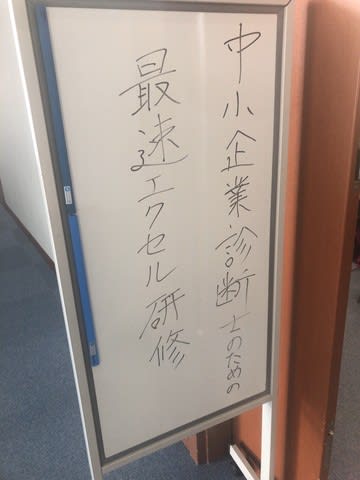 中小企業診断士のための
最速エクセル研修